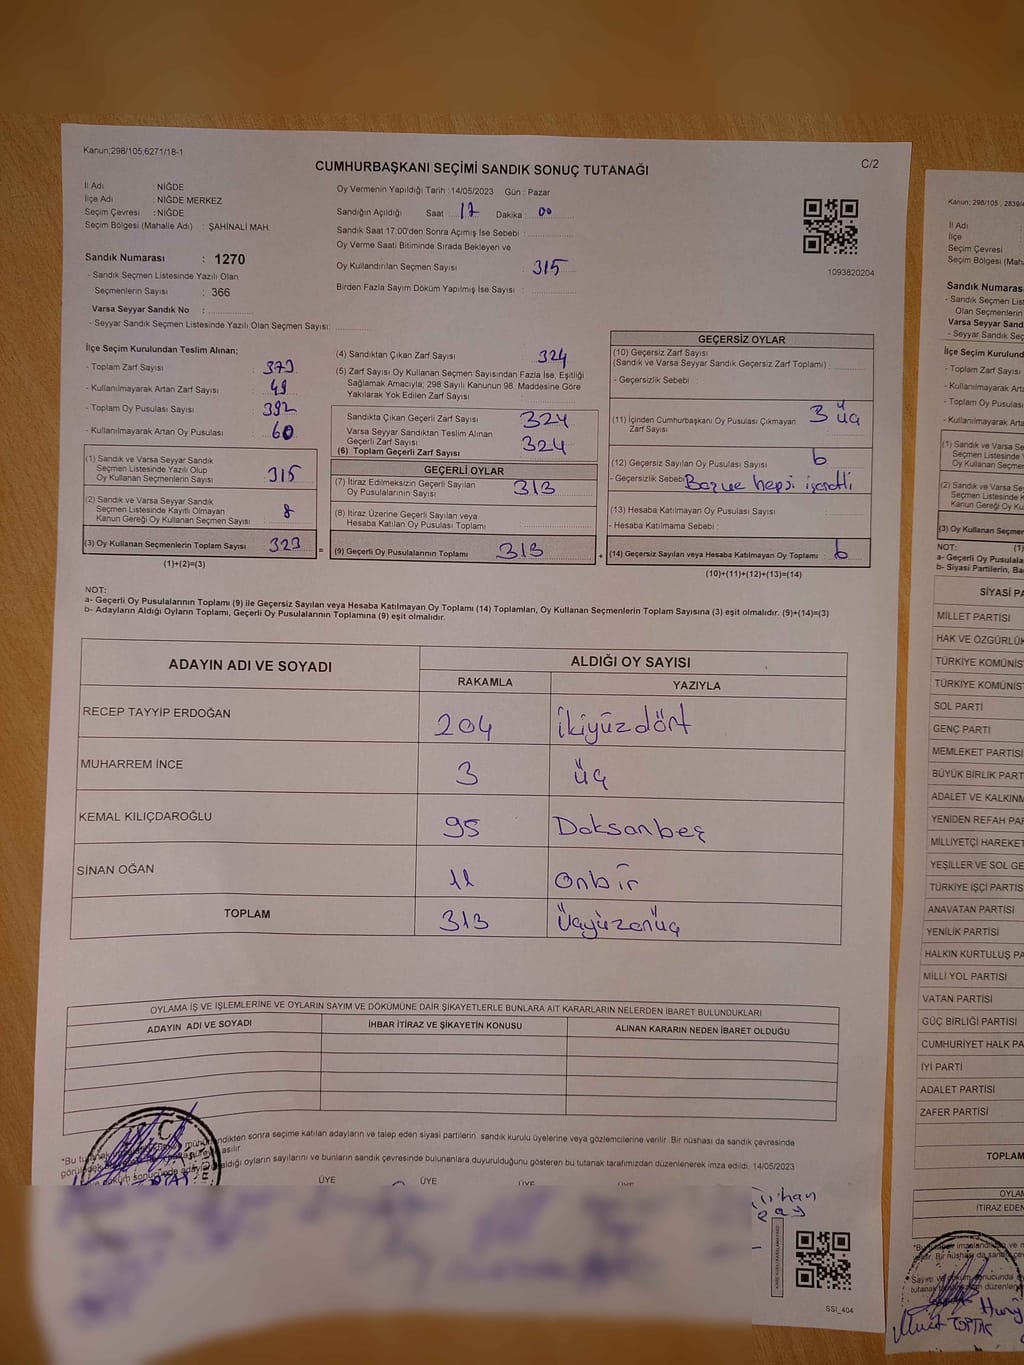 Kanun:298/105;6271/18-1
C/2
CUMHURBAŞKANI SEÇİMİ SANDIK SONUÇ TUTANAĞI
İl Adı : NİĞDE
İlçe Adı : NİĞDE MERKEZ
Seçim Çevresi : NİĞDE
Seçim Bölgesi (Mahalle Adı) : ŞAHİNALİ MAH.
Sandık Numarası : 1270
- Sandık Seçmen Listesinde Yazılı Olan
Seçmenlerin Sayısı : 366
Varsa Seyyar Sandık No :
- Seyyar Sandık Seçmen Listesinde Yazılı Olan Seçmen Sayısı:
Oy Vermenin Yapıldığı Tarih : 14/05/2023 Gün : Pazar
Sandığın Açıldığı Saat 17 Dakika 00
Sandık Saat 17:00'den Sonra Açımış İse Sebebi :
Oy Verme Saati Bitiminde Sırada Bekleyen ve
Oy Kullandırılan Seçmen Sayısı : 315
Birden Fazla Sayım Döküm Yapılmış İse Sayısı :
1093820204
İlçe Seçim Kurulundan Teslim Alınan;
- Toplam Zarf Sayısı : 373
- Kullanılmayarak Artan Zarf Sayısı : 49
- Toplam Oy Pusulası Sayısı : 392
- Kullanılmayarak Artan Oy Pusulası : 60
(1) Sandık ve Varsa Seyyar Sandık
Seçmen Listesinde Yazılı Olup
Oy Kullanan Seçmenlerin Sayısı : 315
(2) Sandık ve Varsa Seyyar Sandık
Seçmen Listesinde Kayıtlı Olmayan
Kanun Gereği Oy Kullanan Seçmen Sayısı : 8
(3) Oy Kullanan Seçmenlerin Toplam Sayısı : 323
(1)+(2)=(3)
(4) Sandıktan Çıkan Zarf Sayısı : 324
(5) Zarf Sayısı Oy Kullanan Seçmen Sayısından Fazla İse, Eşitliği
Sağlamak Amacıyla; 298 Sayılı Kanunun 98. Maddesine Göre
Yakılarak Yok Edilen Zarf Sayısı :
Sandıkta Çıkan Geçerli Zarf Sayısı : 324
Varsa Seyyar Sandıktan Teslim Alınan
Geçerli Zarf Sayısı : 324
(6) Toplam Geçerli Zarf Sayısı :
GEÇERLİ OYLAR
(7) İtiraz Edilmeksizin Geçerli Sayılan
Oy Pusulalarının Sayısı : 313
(8) İtiraz Üzerine Geçerli Sayılan veya
Hesaba Katılan Oy Pusulası Toplamı :
= (9) Geçerli Oy Pusulalarının Toplamı : 313
GEÇERSİZ OYLAR
(10) Geçersiz Zarf Sayısı
(Sandık ve Varsa Seyyar Sandık Geçersiz Zarf Toplamı) :
- Geçersizlik Sebebi :
(11) İçinden Cumhurbaşkanı Oy Pusulası Çıkmayan
Zarf Sayısı : 3 üç
(12) Geçersiz Sayılan Oy Pusulası Sayısı : 6
- Geçersizlik Sebebi hepsi
(13) Hesaba Katılmayan Oy Pusulası Sayısı :
- Hesaba Katılmama Sebebi :
+ (14) Geçersiz Sayılan veya Hesaba Katılmayan Oy Toplamı : 6
(10)+(11)+(12)+(13)=(14)
NOT:
a- Geçerli Oy Pusulalarının Toplamı (9) ile Geçersiz Sayılan veya Hesaba Katılmayan Oy Toplamı (14) Toplamları, Oy Kullanan Seçmenlerin Toplam Sayısına (3) eşit olmalıdır. (9)+(14)=(3)
b- Adayların Aldığı Oyların Toplamı, Geçerli Oy Pusulalarının Toplamına (9) eşit olmalıdır.
ADAYIN ADI VE SOYADI ALDIĞI OY SAYISI
RAKAMLA YAZIYLA
RECEP TAYYİP ERDOĞAN 204 İkiyüzdört
MUHARREM İNCE 3 üç
KEMAL KILIÇDAROĞLU 95 Doksanbeş
SİNAN OĞAN 11 Onbir
TOPLAM 313 Üçyüzonüç
OYLAMA İŞ VE İŞLEMLERİNE VE OYLARIN SAYIM VE DÖKÜMÜNE DAİR ŞİKAYETLERLE BUNLARA AİT KARARLARIN NELERDEN İBARET BULUNDUKLARI
ADAYIN ADI VE SOYADI İHBAR İTİRAZ VE ŞİKAYETİN KONUSU ALINAN KARARIN NEDEN İBARET OLDUĞU
sonra seçime katılan adayların ve talep eden siyasi partilerin sandık kurulu üyelerine veya gözlemcilerine verilir. Bir nüshası da sandık çevresinde
oyların sayılarını ve bunların sandık çevresinde bulunanlara duyurulduğunu gösteren bu tutanak tarafımızdan düzenlenerek imza edildi. 14/05/2023
ÜYE ÜYE
SSI_404
Kanun: 298/105
İl Adı
İlçe
Seçim Çevresi
Seçim Bölgesi
Sandık
- Sandık Seçmen
Olan Seçmenlerin
Varsa Seyyar
- Seyyar
İlçe Seçim
- Toplam Zarf
- Kullanılmayarak
- Toplam Oy
- Kullanılmayarak
(1) Sandık ve
Seçmen
Oy Kullanan
(2) Sandık ve
Seçmen
Kanun
(3) Oy Kullanan
NOT: (1)
a- Geçerli
b- Siyasi Partilerin,
SİYASİ
MİLLET PARTİSİ
HAK VE
TÜRKİYE
TÜRKİYE
SOL PARTİ
GENÇ PARTİ
MEMLEKET PARTİSİ
BÜYÜK BİRLİK
ADALET VE
YENİDEN REFAH
MİLLİYETÇİ
YEŞİLLER VE SOL
TÜRKİYE İŞÇİ
ANAVATAN PARTİSİ
YENİLİK PARTİSİ
HALKIN KURTULUŞ
MİLLİ YOL PARTİSİ
VATAN PARTİSİ
GÜÇ BİRLİĞİ PARTİSİ
CUMHURİYET HALK
İYİ PARTİ
ADALET PARTİSİ
ZAFER PARTİSİ
TOPLAM
İTİRAZ